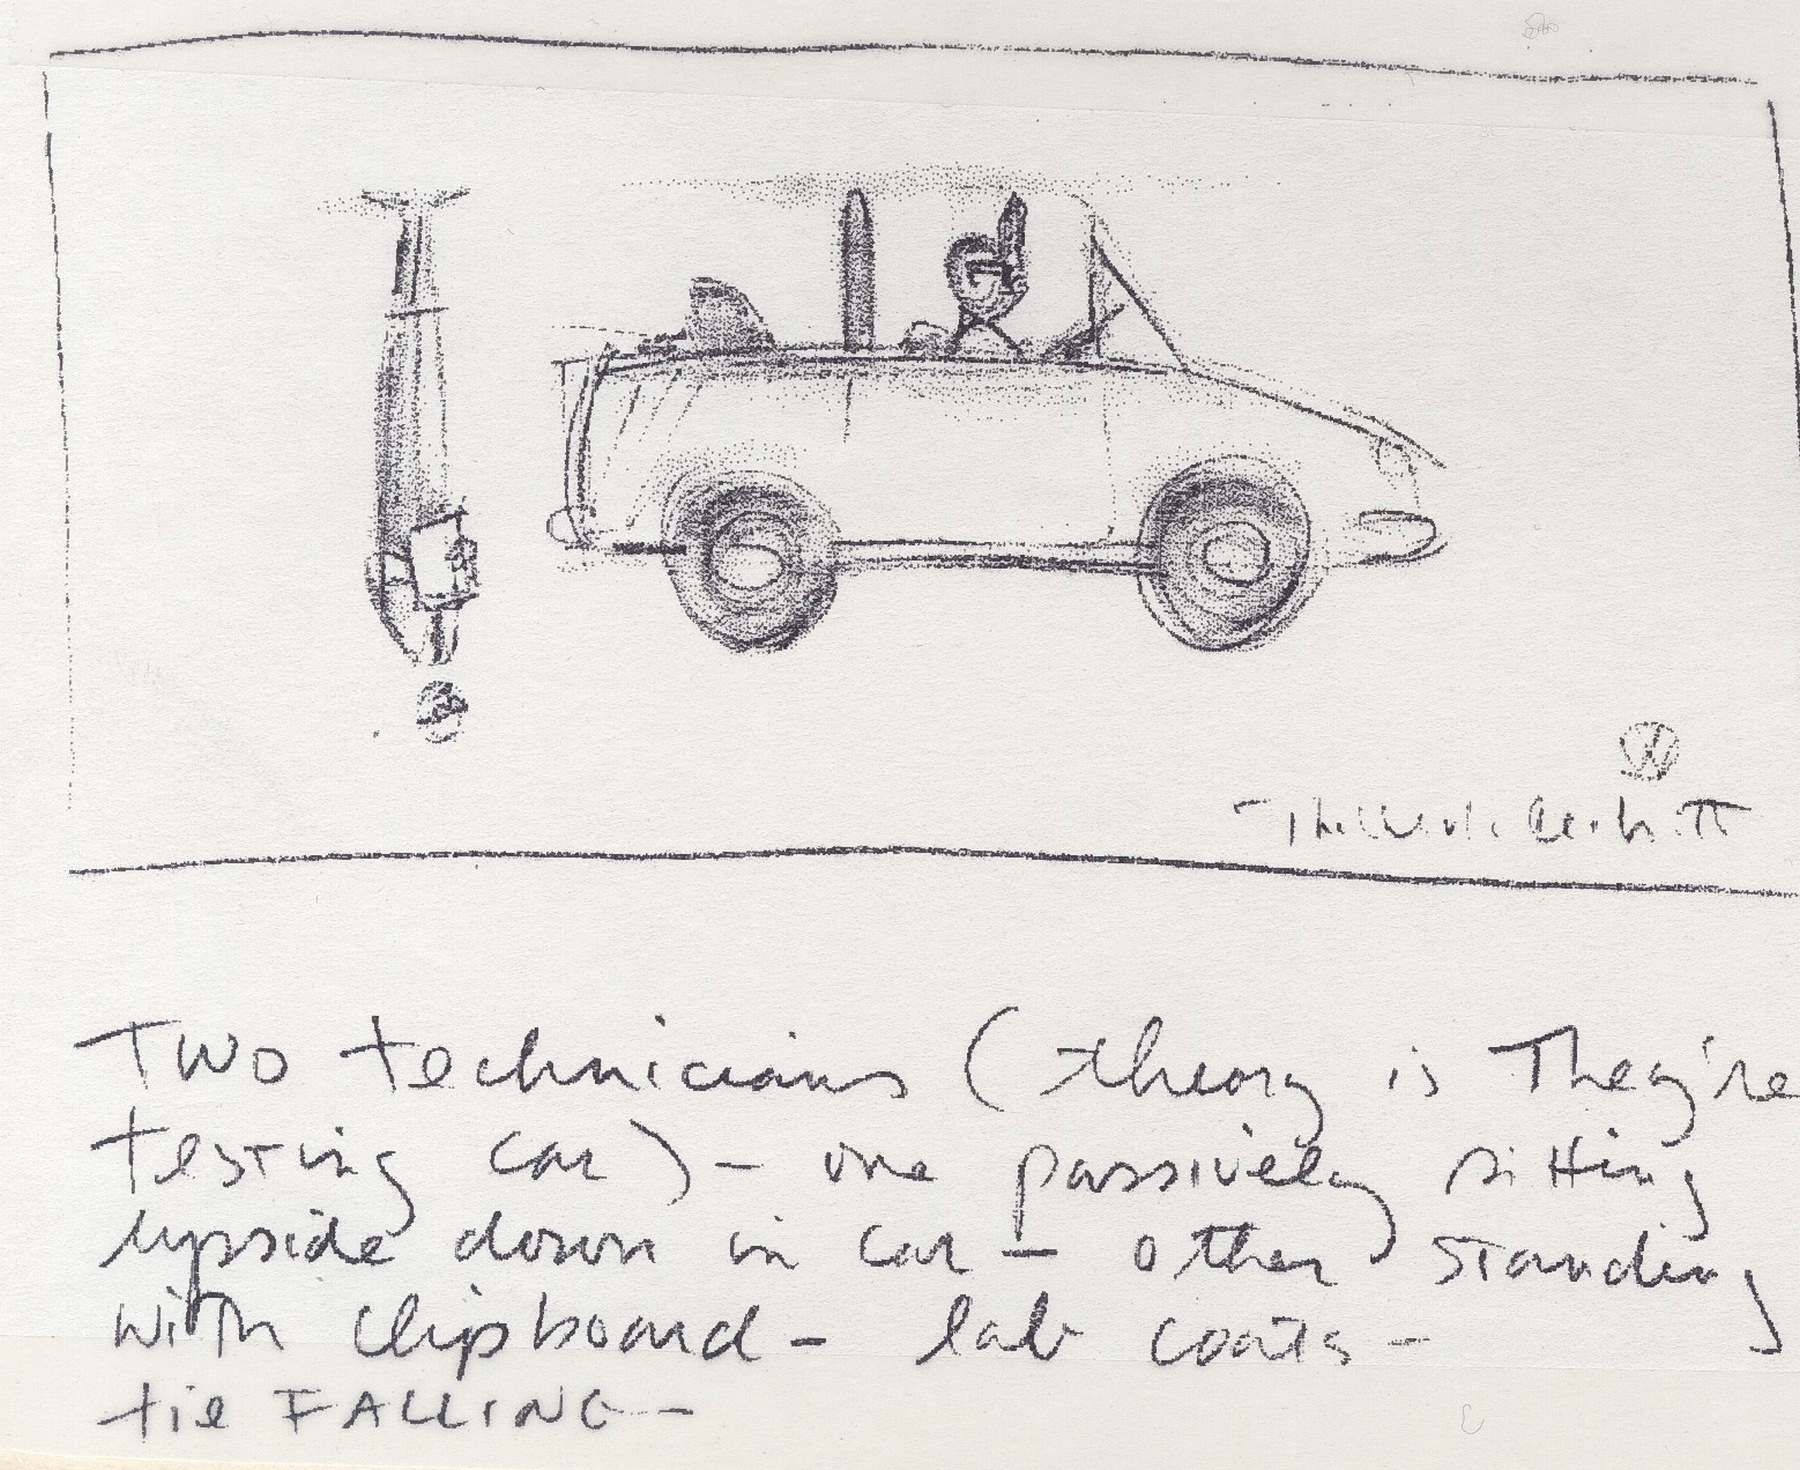 VW
Two technicians (theory is They're
testing car) - one passively sitting
upside down in car - other standing
with clipboard - lab coats -
tie FALLING -